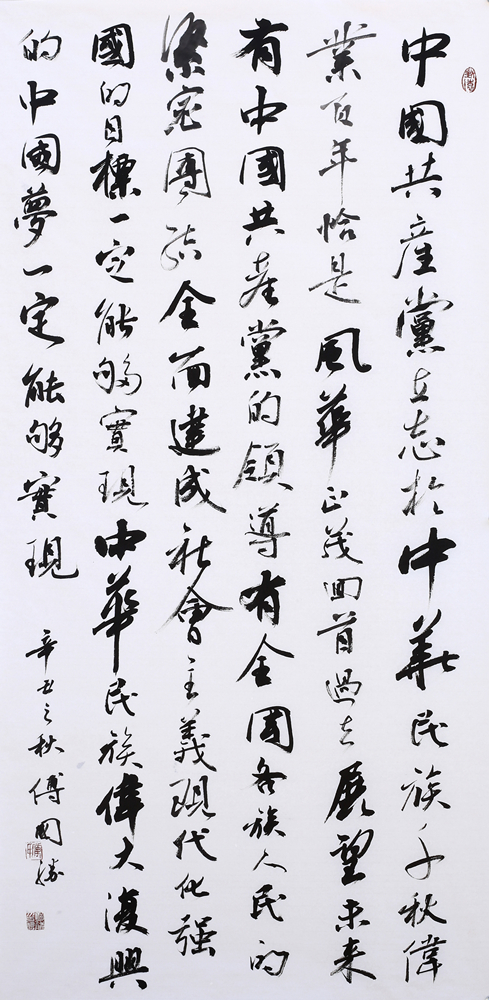 中國共產黨立志於中華民族千秋偉
業百年恰是風華正茂回首過去展望未来
有中國共產黨的領導有全國各族人民的
緊密團結全面建成社會主義現代化强
國的目標一定能够實現中華民族偉大復興
的中國夢一定能够實現
辛丑之秋傅國勝